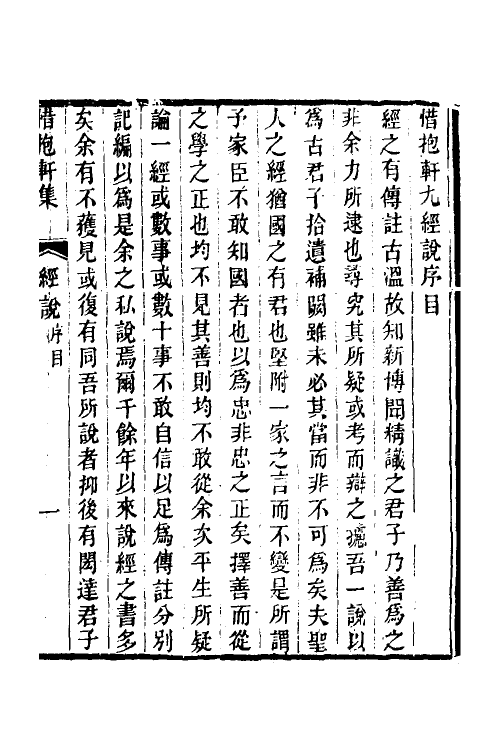 惜抱軒九經說序目
經之有傳註古溫故知新博聞精識之君子乃善爲之
非余力所逮也尋究其所疑或考而辯之攄吾一說以
爲古君子拾遺補闕雖未必其當而非不可爲矣夫聖
人之經猶國之有君也堅附一家之言而不變是所謂
予家臣不敢知國者也以爲忠非忠之正矣擇善而從
之學之正也均不見其善則均不敢從余次平生所疑
論一經或數事或數十事不敢自信以足爲傳註分別
記編以爲是余之私說焉爾千餘年以來說經之書多
矣余有不獲見或復有同吾所說者抑後有閎達君子
惜抱軒集
經說
序目
一